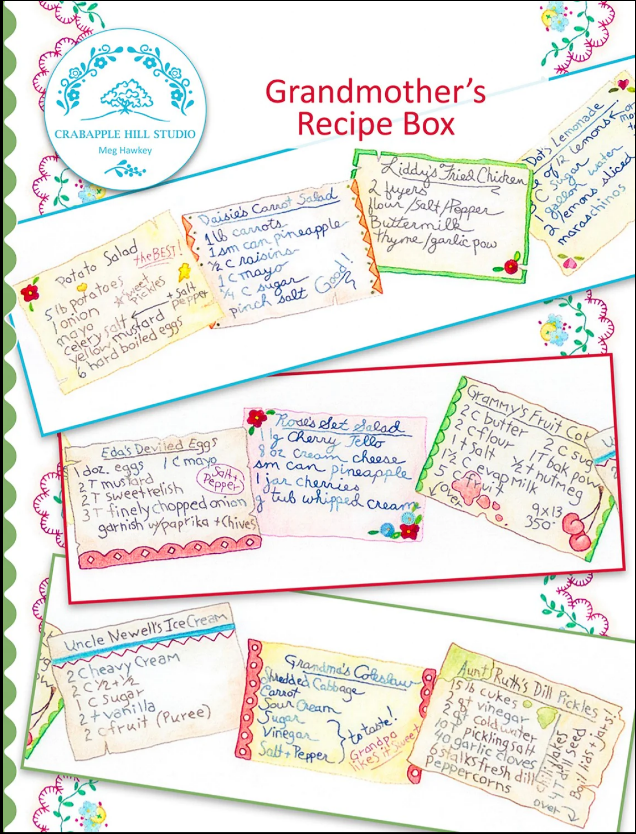 CRABAPPLE HILL STUDIO
Meg Hawkey
Grandmother's
Recipe Box
Potato Salad
the BEST!
5 lb potatoes
1 onion
mayo
celery salt
yellow mustard
6 hard boiled eggs
* sweet pickles
+ salt
pepper
Daisie's Carrot Salad
1 lb carrots
1 sm can pineapple
½ c raisins
1 c mayo
¼ c sugar
pinch salt
Good!
Liddy's Fried Chicken
2 fryers
flour/salt/Pepper
Buttermilk
thyme/garlic pow
Dot's Lemonade
of 12 lemons
1 C sugar
gallon water
2 lemons sliced
maraschinos
Eda's Deviled Eggs
1 doz. eggs 1 C mayo
2 T mustard
2 T sweet relish
3 T finely chopped onion
garnish w/paprika + chives
Salt +
Pepper
Rose's Set Salad
1 lg Cherry Jello
8 oz cream cheese
sm can pineapple
1 jar cherries
g tub whipped cream
Grammy's Fruit Co
2 C butter 2 C su
2 C flour 1 T bak pow
1 t salt ½ t nutmeg
1½ C evap milk
5 C fruit
over
9x13
350°
Uncle Newell's Ice Cream
2 C heavy Cream
2 C ½+½
1 C sugar
2 t vanilla
2 c fruit (Puree)
Grandma's Coleslaw
Shredded Cabbage
Carrot
Sour Cream
Sugar
Vinegar
Salt + Pepper
to taste!
Grandpa
likes it sweet!
Aunt Ruth's Dill Pickles
15 lb cukes
2 qt vinegar
2 qt cold water
10 T pickling salt
40 garlic cloves
6 stalks fresh dill
peppercorns
chili flakes
4 T dill seed
Boil lids + jars!
over